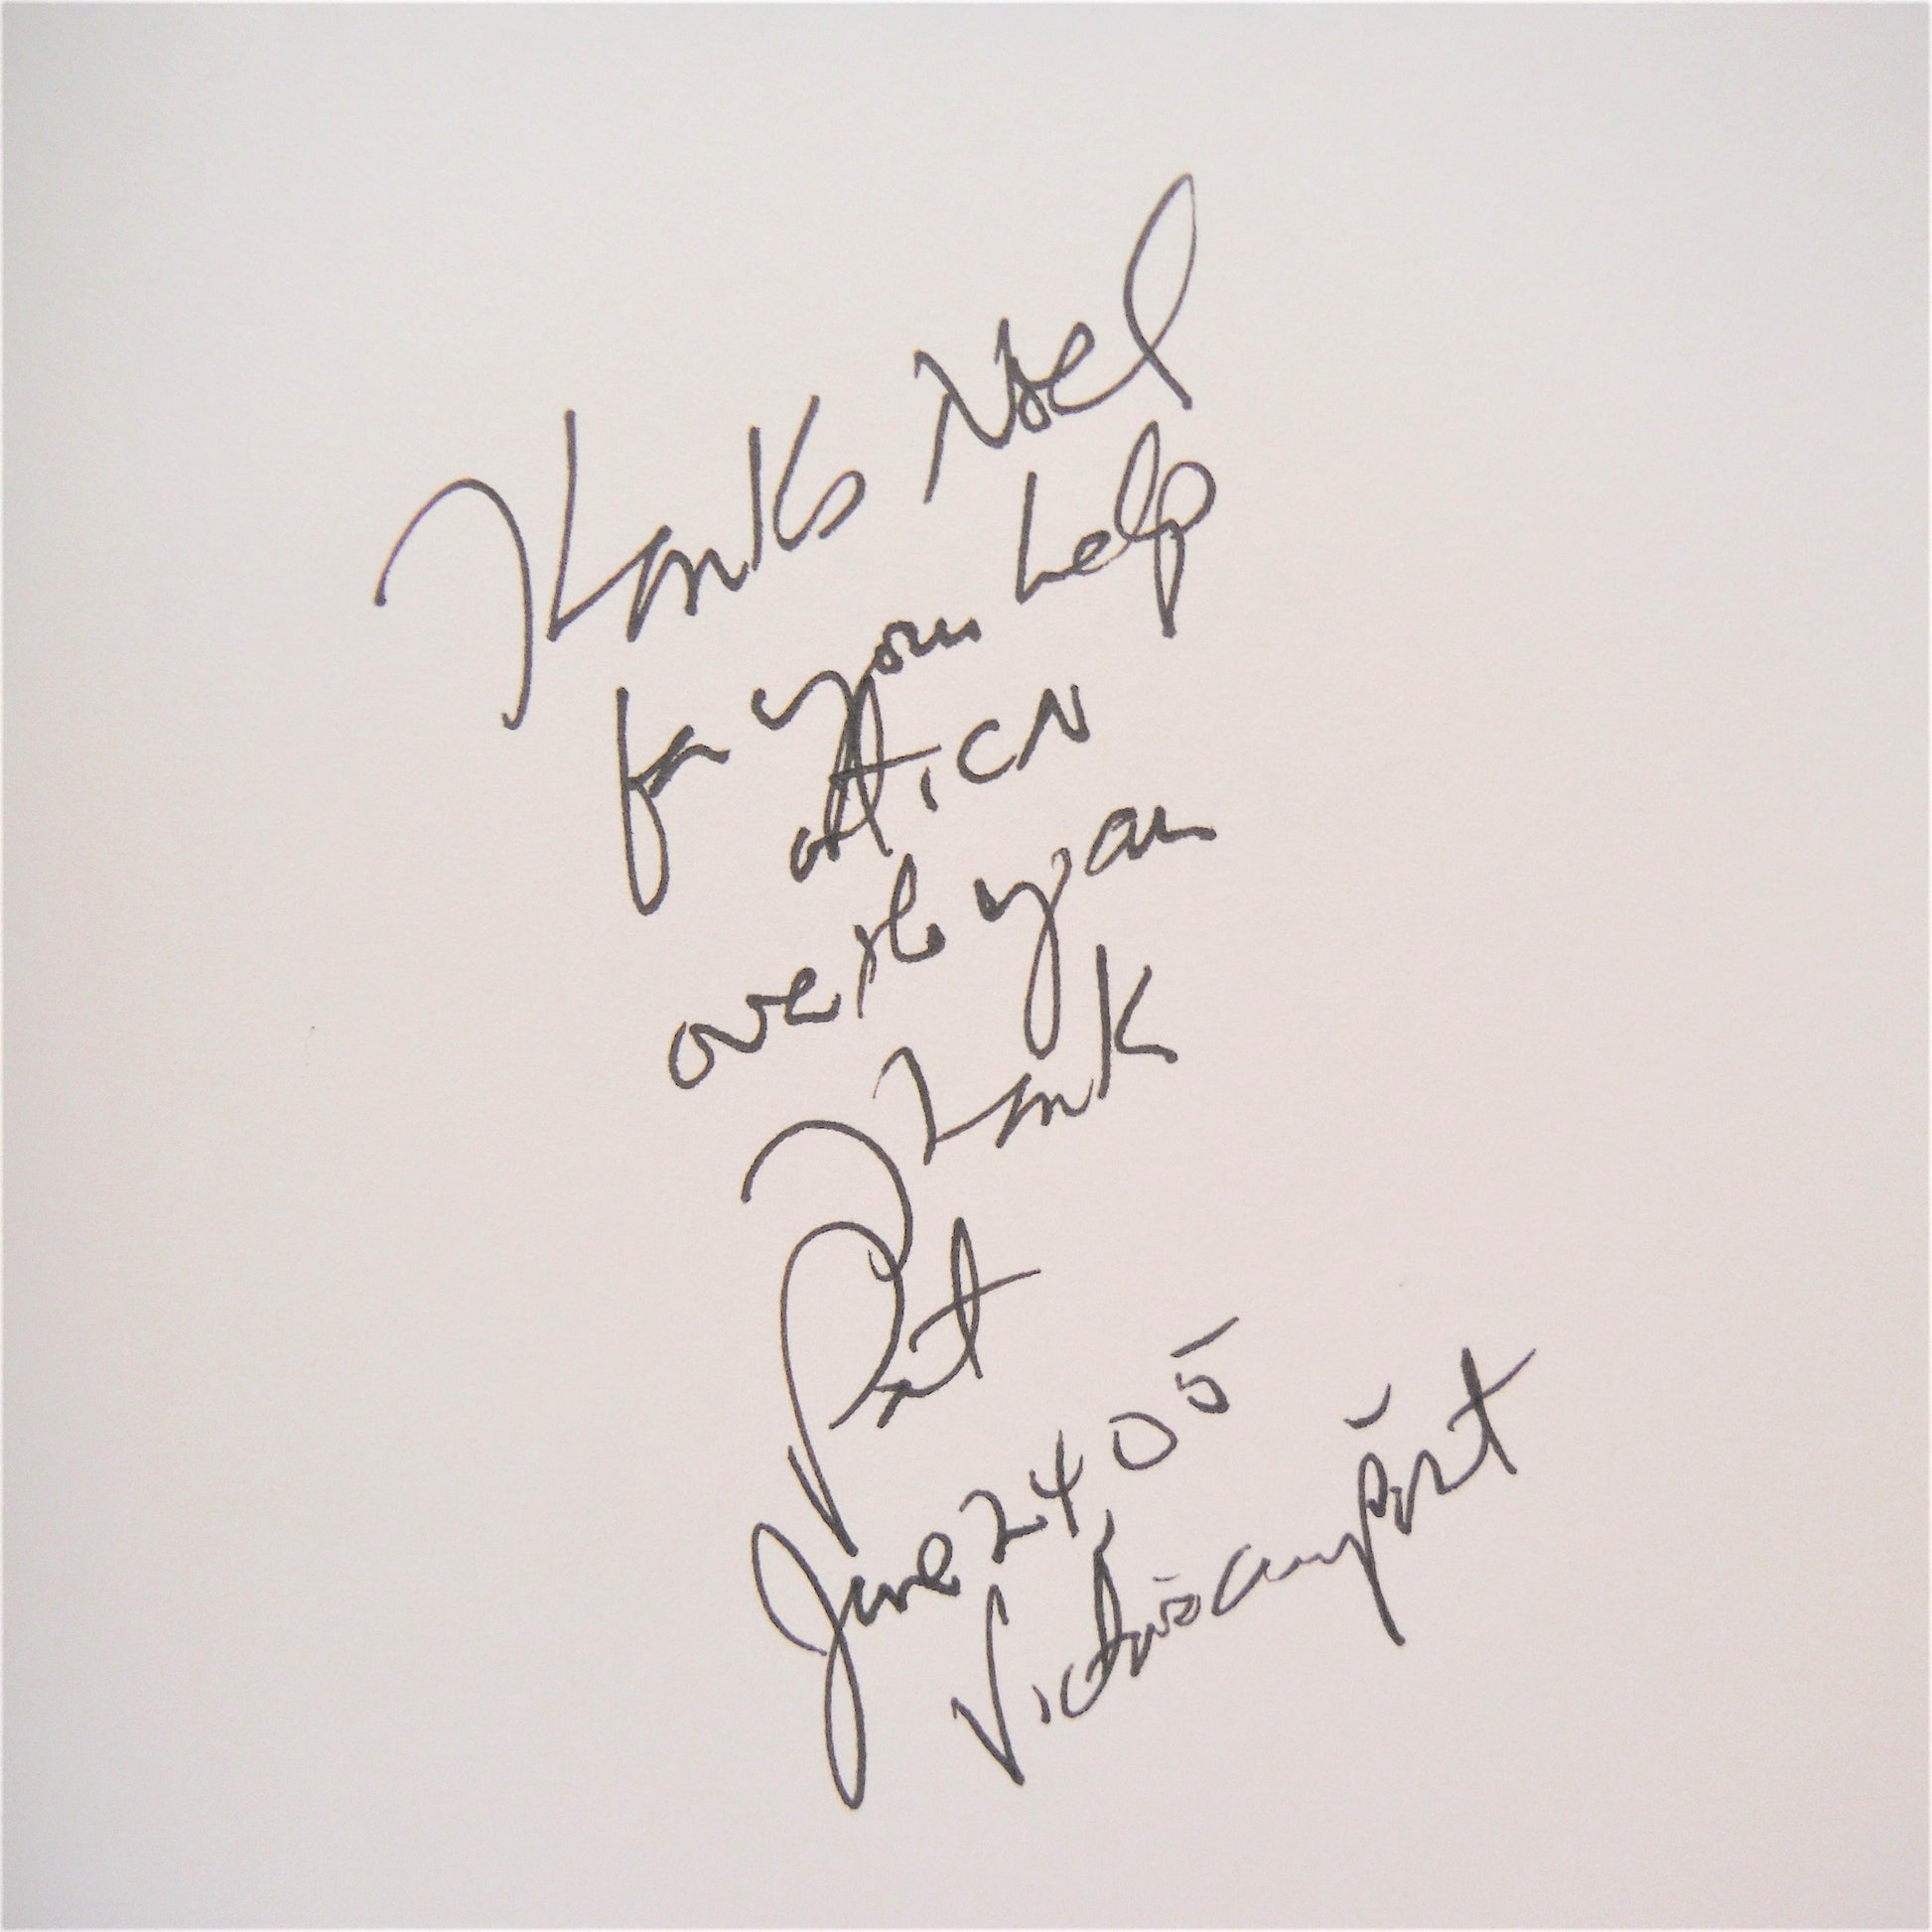 Thanks Noel
for your help
at ICN
over the years
Thank
Pat
June 24, 05